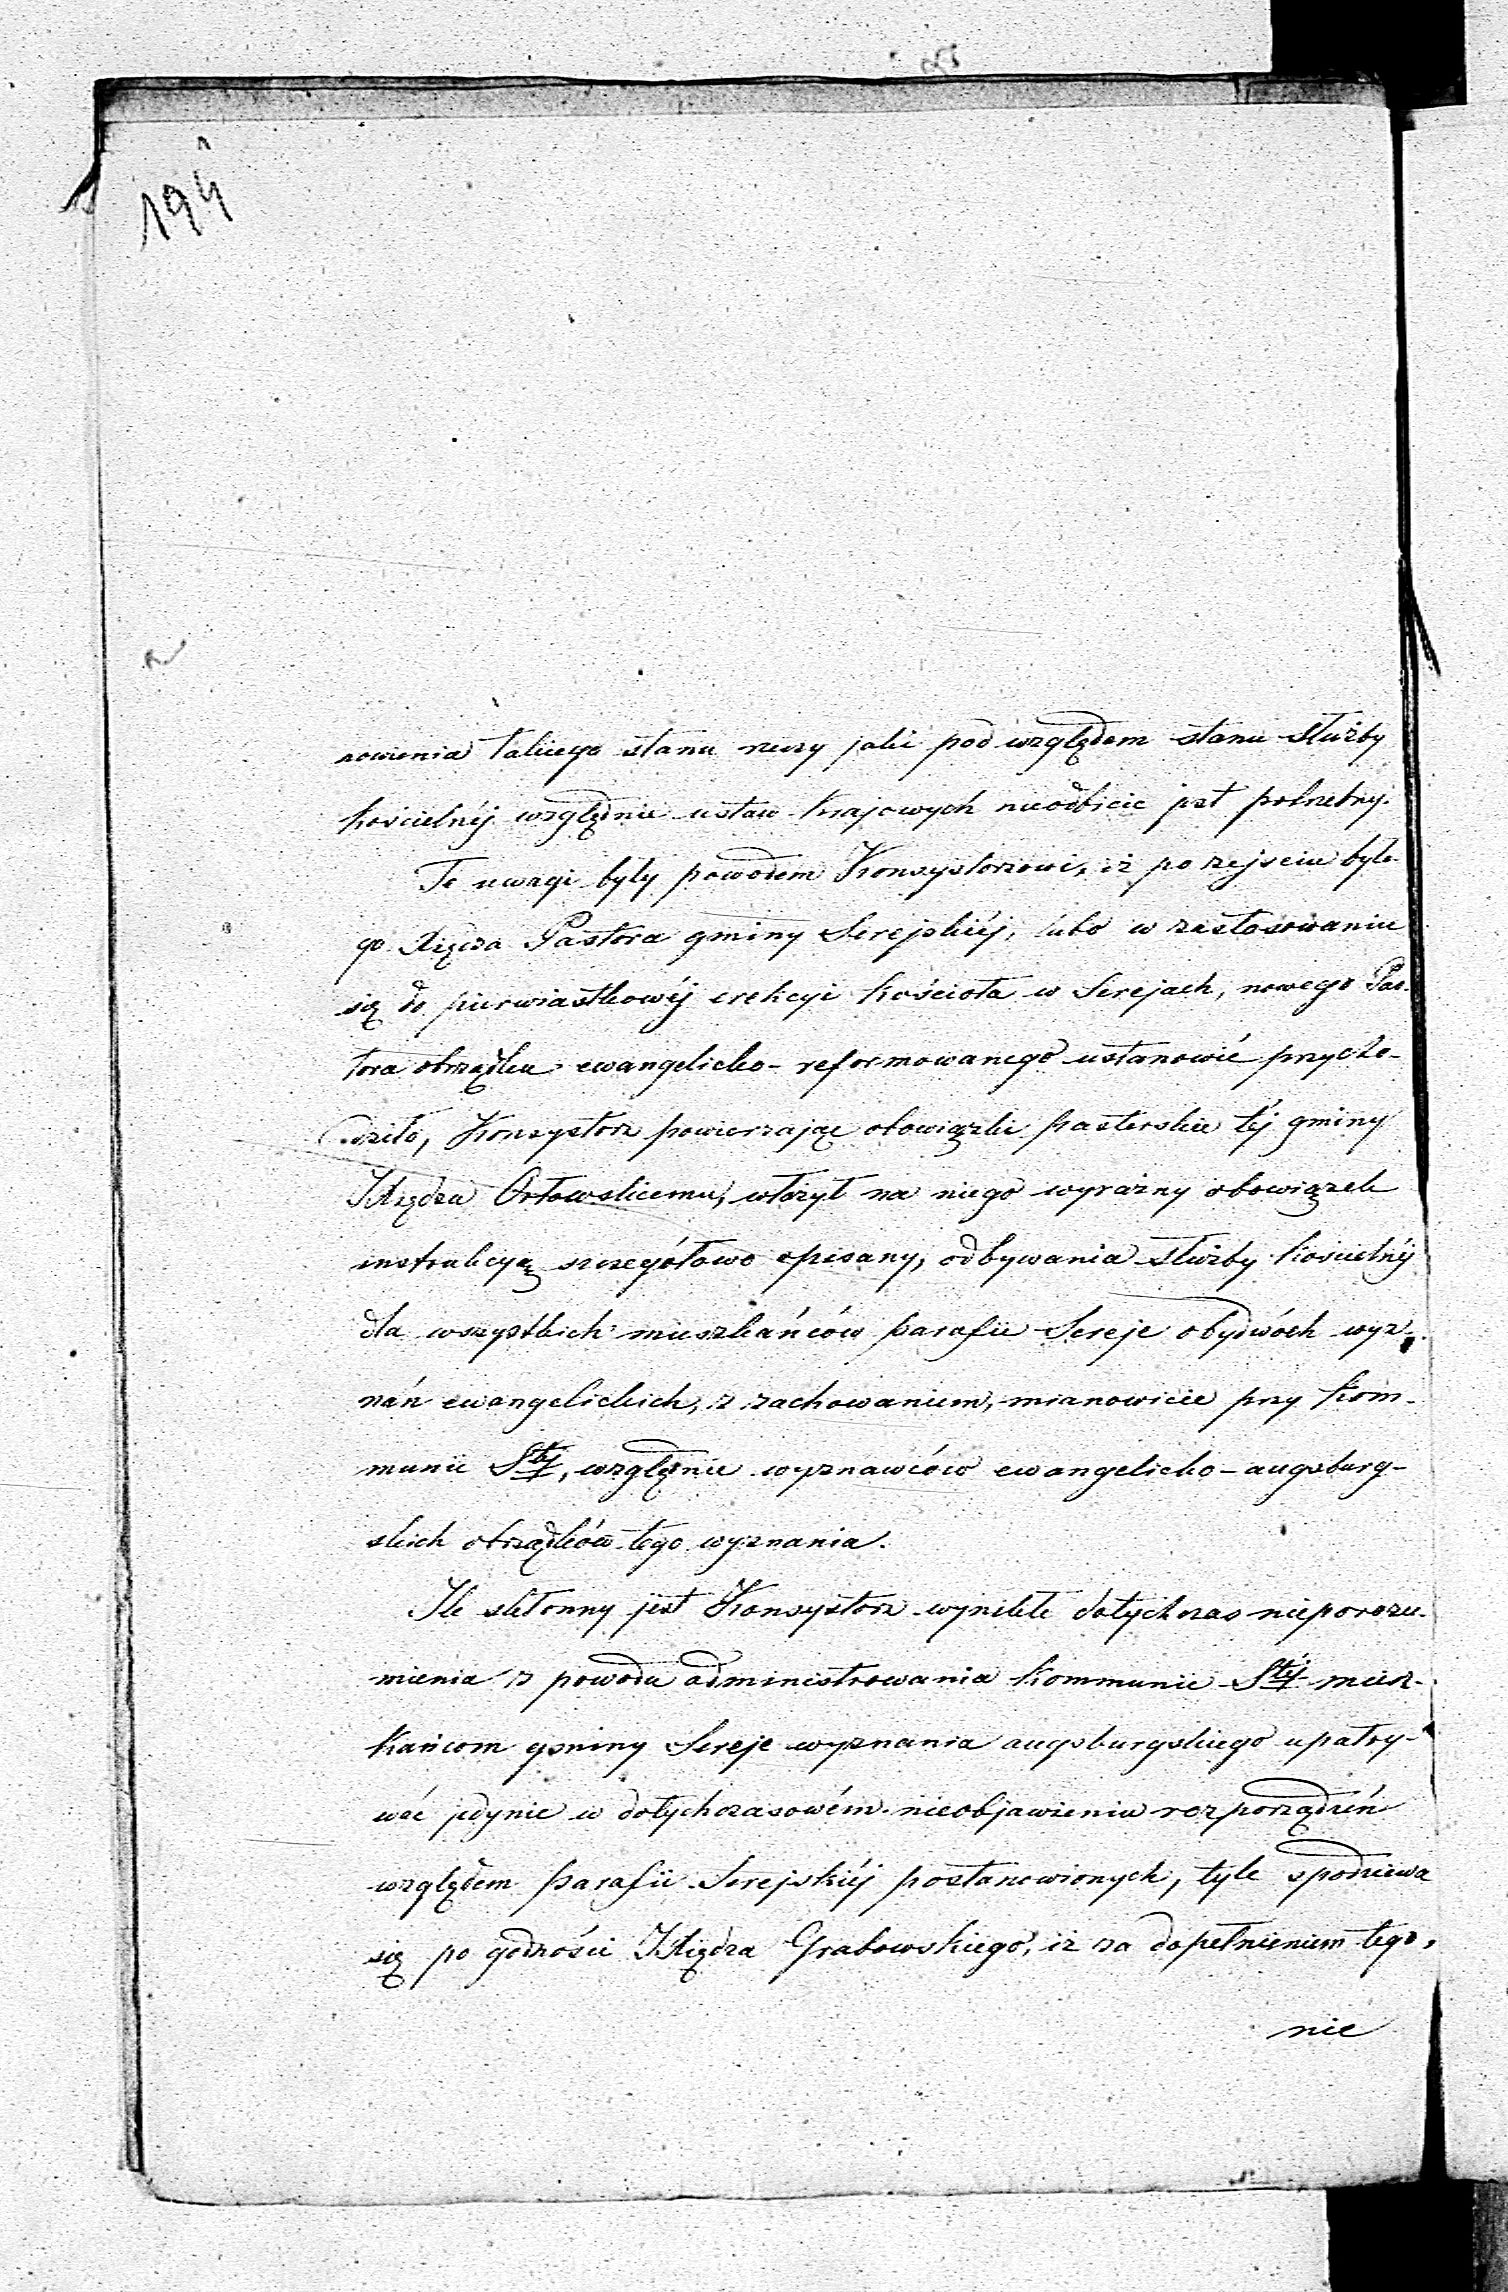 194
nowienia takiego stanu rzeczy jaki pod względem stanu służby
kościelnéj względnie ustaw krajowych nieodbicie jest potrzebny.
Te uwagi były powodem Konsystorzowi, iż po zejściu byłe-
go Xiędza Pastora gminy Serejskiéj, lubo w zastosowaniu
się do pierwiastkowéj erekcyi kościoła w Serejach, nowego Pas-
tora obrządku ewangelicko-reformowanego ustanowić przycho-
dziło, Konsystorz powierzając obowiązki pasterskie téj gminy
Xiędzu Orłowskiemu, włożył na niego wyraźny obowiązek
instrukcyą szczegółowo opisany, odbywania służby kościelnéj
dla wszystkich mieszkańców parafii Sereje obydwóch wyz-
nań ewangelickich, z zachowaniem, mianowicie przy kom-
munii Stéj, względnie wyznawców ewangelicko-augsburg-
skich obrządków tego wyznania.
Ile skłonny jest Konsystorz wynikłe dotychczas nieporozu-
mienia z powodu administrowania kommunii Stéj miesz-
kańcom gminy Sereje wyznania augsburgskiego upatry-
wać jedynie w dotychczasowém nieobjawieniu rozporządzeń
względem parafii Serejskiéj postanowionych, tyle spodziewa
się po godności Xiędza Grabowskiego, iż za dopełnieniem tego,
nie